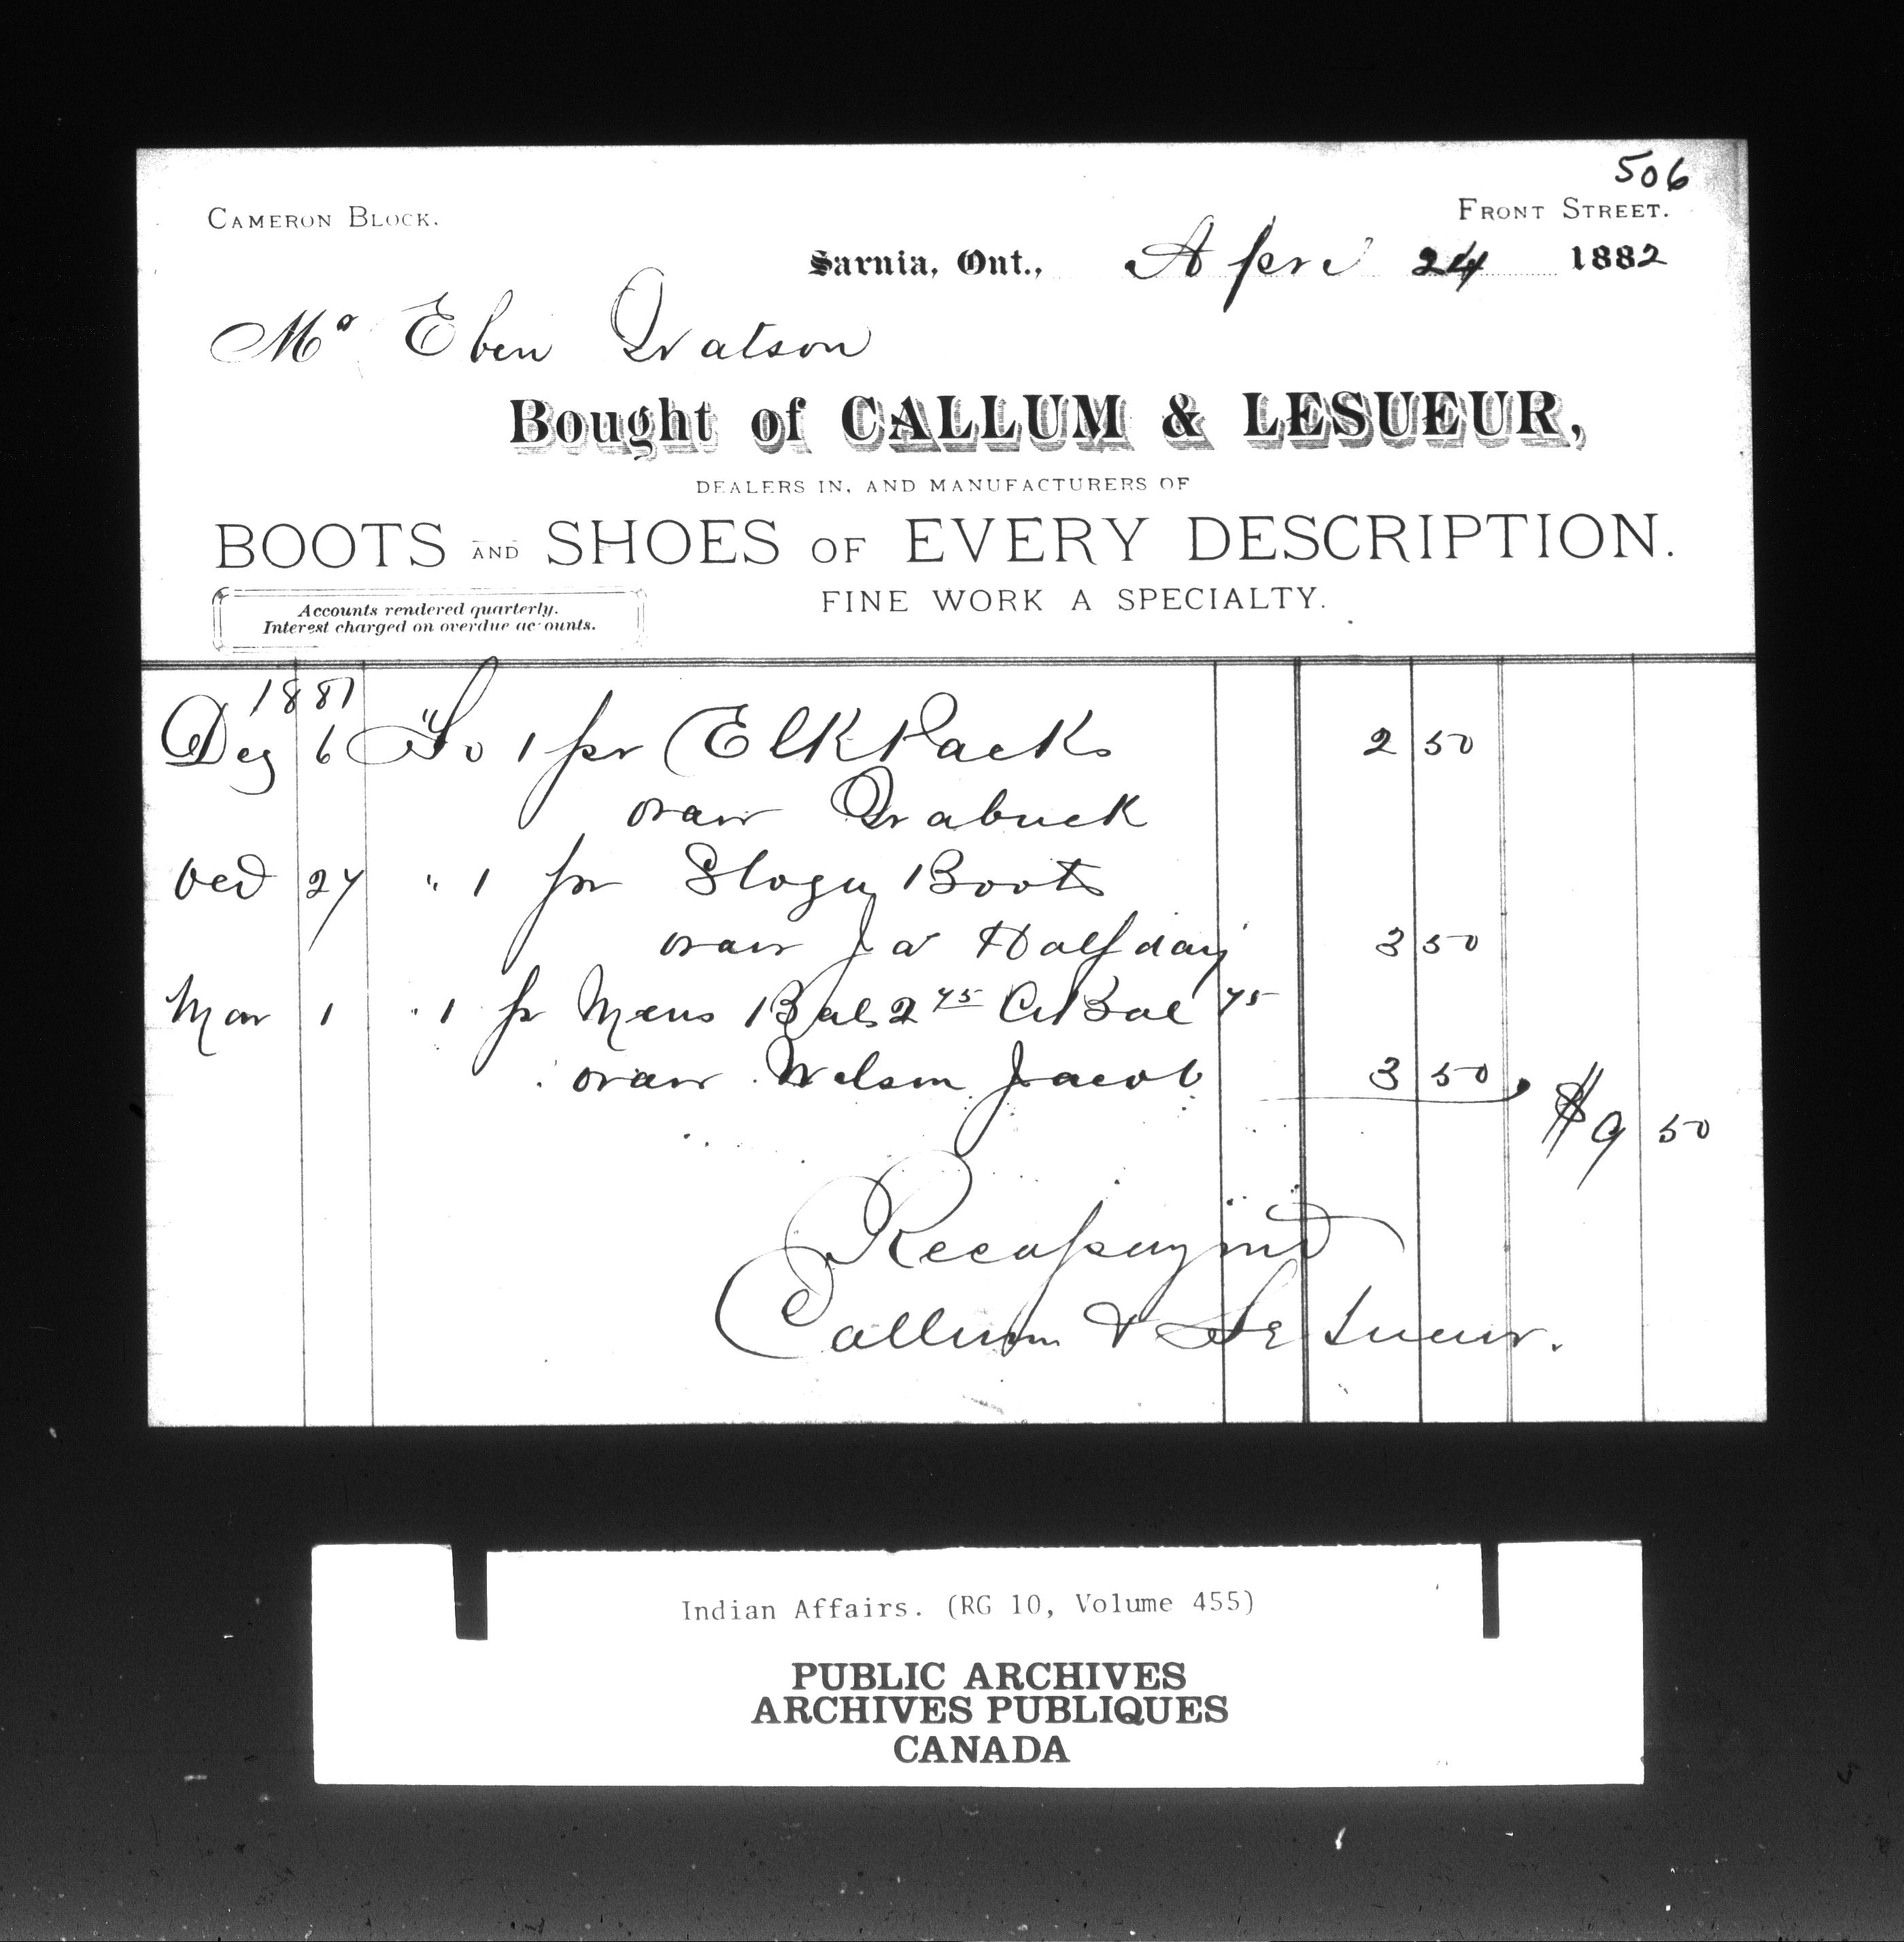 506
CAMERON BLOCK. FRONT STREET.
Sarnia, Ont., Apri 24 1882
Mr Eben Watson
Bought of CALLUM & LESUEUR,
DEALERS IN, AND MANUFACTURERS OF
BOOTS AND SHOES OF EVERY DESCRIPTION.
Accounts rendered quarterly. FINE WORK A SPECIALTY.
Interest charged on overdue accounts.
1881
Dec 6 To 1 pr Elk Packs 2 50
Wabuck
27 " 1 pr Stogy Boots
Halfday 3 50
Mar 1 " 1 pr Mens Bals 2 75 Bal 75
Wilson Jacob 3 50
$9 50
Rec payment
Callum & LeSueur.
Indian Affairs. (RG 10, Volume 455)
PUBLIC ARCHIVES
ARCHIVES PUBLIQUES
CANADA